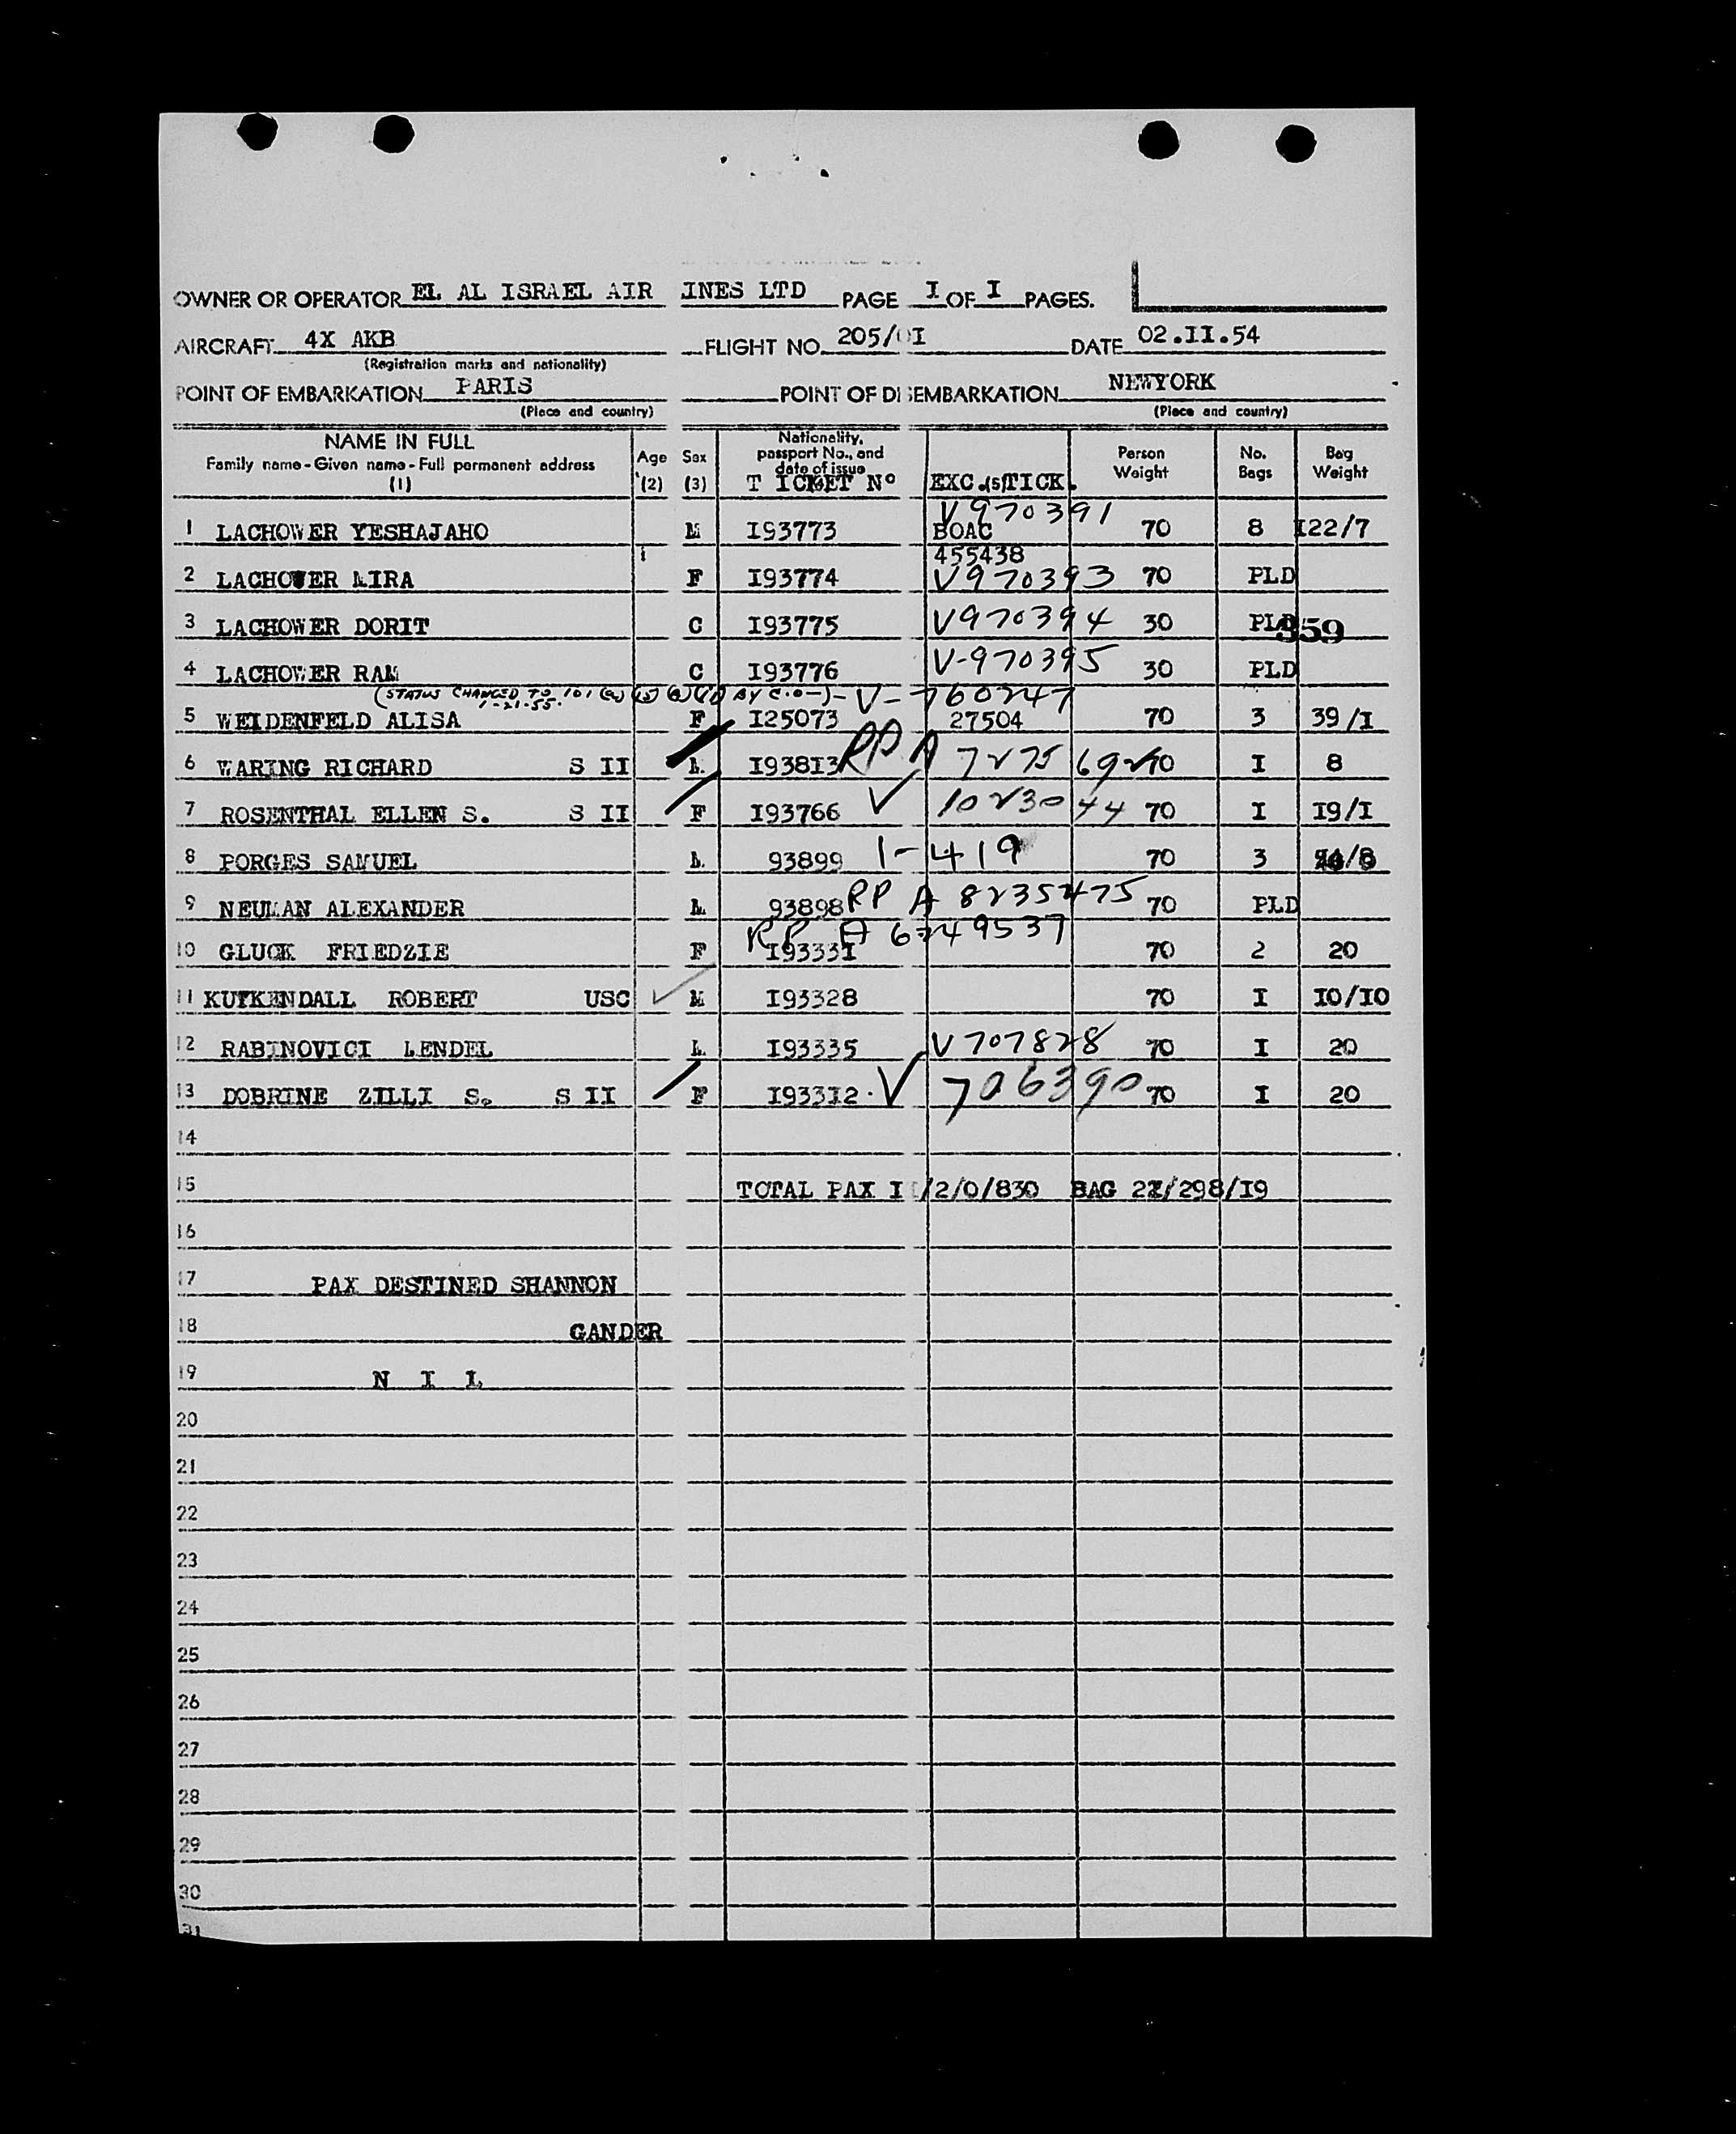 OWNER OR OPERATOR EL AL ISRAEL AIR INES LTD PAGE I OF I PAGES.
AIRCRAFT 4X AKB FLIGHT NO. 205/0I DATE 02.II.54
(Registration marks and nationality)
POINT OF EMBARKATION PARIS POINT OF DISEMBARKATION NEWYORK
(Place and country) (Place and country)
NAME IN FULL
Family name - Given name - Full permanent address
(1)
Age
(2)
Sex
(3)
Nationality,
passport No., and
date of issue
T ICKET Nº
EXC.(5)TICK.
Person
Weight
No.
Bags
Bag
Weight
V970391
1 LACHOWER YESHAJAHO M I93773 BOAC 70 8 I22/7
455438
2 LACHOWER MIRA F I93774 V970393 70 PLD
3 LACHOWER DORIT C I93775 V970394 30 PLD 359
4 LACHOWER RAM C I93776 V-970395 30 PLD
(STATUS CHANGED TO 101 (a) (15) (a) (i) BY C.O-)- V-760247
1-21-55.
5 WEIDENFELD ALISA F I25073 27504 70 3 39/I
6 WARING RICHARD S II M I93813 RP A 7275692 70 I 8
7 ROSENTHAL ELLEN S. S II F I93766 1023044 70 I I9/I
8 PORGES SAMUEL M 93899 1-419 70 3
9 NEUMAN ALEXANDER M 93898 RP A 8235475 70 PLD
RP A 6749537
10 GLUCK FRIEDZIE F I9333I 70 2 20
11 KUYKENDALL ROBERT USC M I93328 70 I I0/I0
12 RABINOVICI LENDEL M I93335 V707828 70 I 20
13 DOBRINE ZILLI S. S II F I933I2 706390 70 I 20
14
15 TOTAL PAX I /2/0/830 BAG 2I/298/I9
16
17 PAX DESTINED SHANNON
18 GANDER
19 N I L
20
21
22
23
24
25
26
27
28
29
30
31